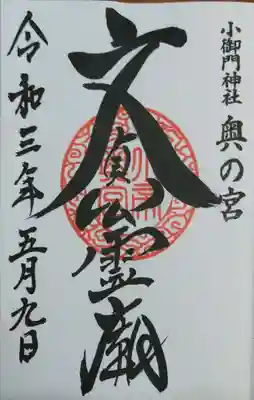 小御門神社 奥の宮
文貞公霊廟
令和三年五月九日